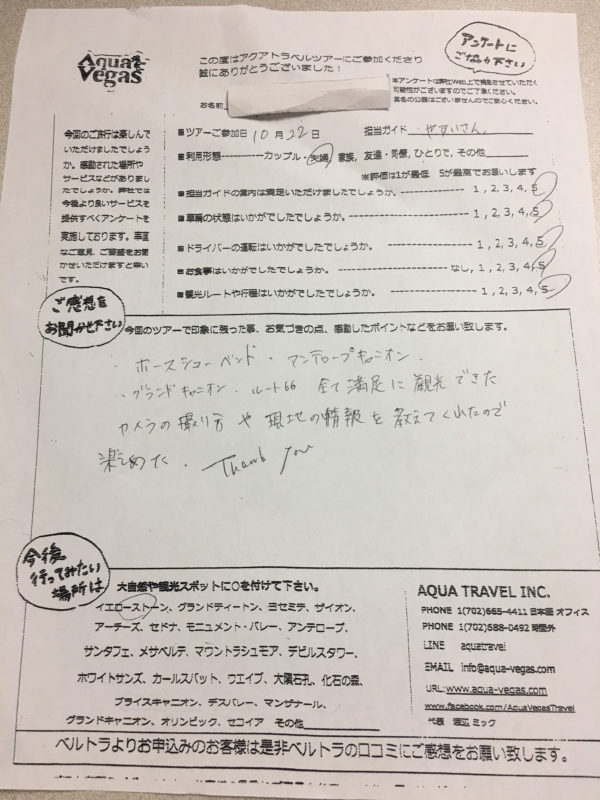 Aqua
Vegas
この度はアクアトラベルツアーにご参加くださり
誠にありがとうございました！
アンケートに
ご協力下さい
本アンケートは弊社Web上で掲載させていただく
可能性がございますのでご了承ください。
実名の公表はございませんのでご安心ください。
お名前
今回のご旅行は楽しんで
いただけましたでしょう
か。感動された場所や
サービスなどがありまし
たでしょうか。弊社では
今後より良いサービスを
提供すべくアンケートを
実施しております。率直
なご意見、ご要望をお聞
かせいただけますと幸い
です。
■ツアーご参加日 10月22日 担当ガイド やすいさん
■利用形態-----------カップル・夫婦, 家族, 友達・同僚, ひとりで, その他
※評価は1が最低 5が最高でお願いします
■担当ガイドの案内は満足いただけましたでしょうか。 --------------- 1, 2, 3, 4, 5
■車輛の状態はいかがでしたでしょうか。 -------------------- 1, 2, 3, 4, 5
■ドライバーの運転はいかがでしたでしょうか。 ---------------- 1, 2, 3, 4, 5
■お食事はいかがでしたでしょうか。 ---------------- なし, 1, 2, 3, 4, 5
■観光ルートや行程はいかがでしたでしょうか。 ---------------- 1, 2, 3, 4, 5
ご感想を
お聞かせ下さい
今回のツアーで印象に残った事、お気づきの点、感動したポイントなどをお願い致します。
・ホースシューベンド・アンテロープキャニオン・
・グランドキャニオン・ルート66 全て満足に観光できた
カメラの撮り方や現地の情報を教えてくれたので
楽しめた。 Thank you
今後
行ってみたい
場所は
大自然や観光スポットに○を付けて下さい。
イエローストーン、グランドティートン、ヨセミテ、ザイオン、
アーチーズ、セドナ、モニュメント・バレー、アンテロープ、
サンタフェ、メサベルデ、マウントラシュモア、デビルスタワー、
ホワイトサンズ、カールスバット、ウエイブ、大隕石孔、化石の森、
ブライスキャニオン、デスバレー、マンザナール、
グランドキャニオン、オリンピック、セコイア その他
AQUA TRAVEL INC.
PHONE 1(702)665-4411 日本語 オフィス
PHONE 1(702)688-0492 時間外
LINE aquatravel
EMAIL info@aqua-vegas.com
URL:www.aqua-vegas.com
www.facebook.com/AquaVegasTravel
代表 渡辺 ミック
ベルトラよりお申込みのお客様は是非ベルトラの口コミにご感想をお願い致します。